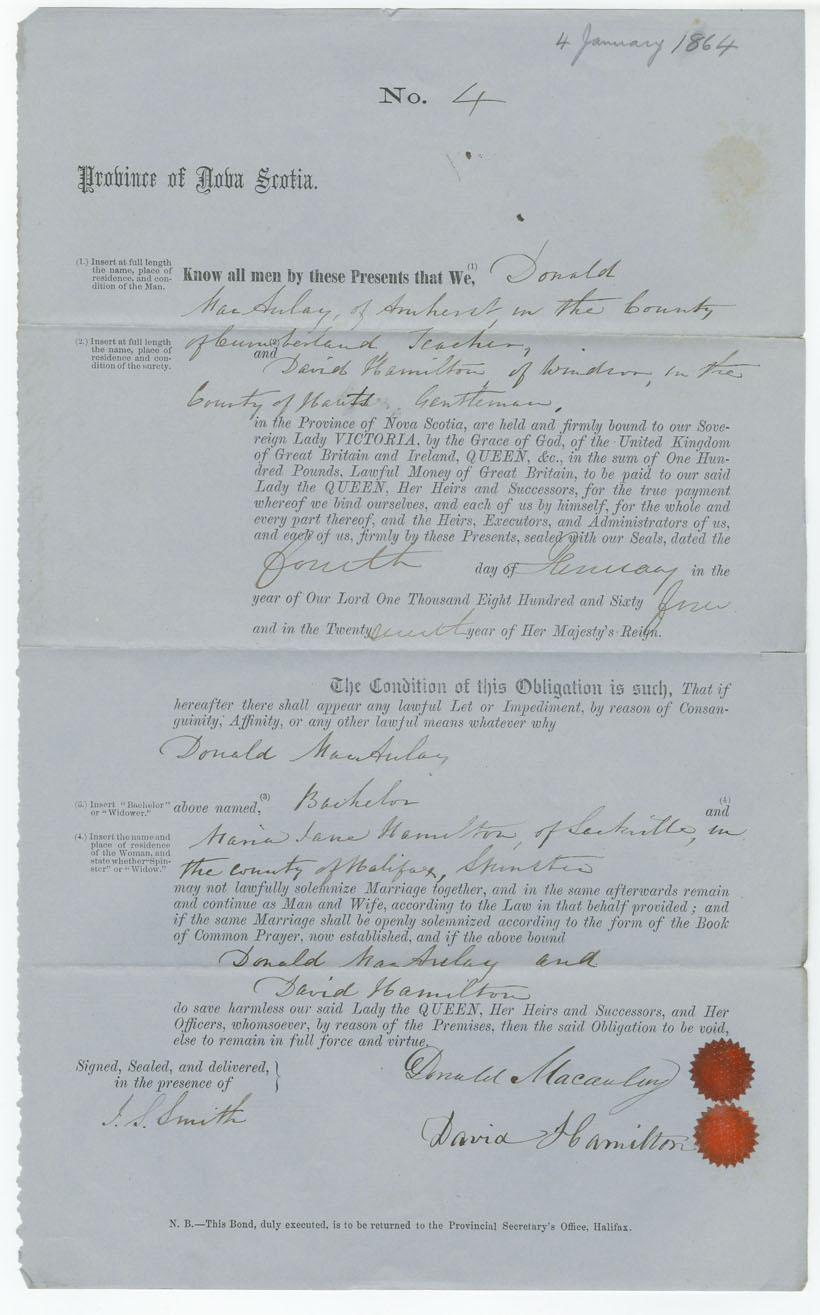 4 January 1864
No. 4
Province of Nova Scotia.
(1.) Insert at full length
the name, place of
residence, and con-
dition of the Man.
Know all men by these Presents that We, (1) Donald
MacAulay, of Amherst, in the County
of Cumberland Teacher,
(2.) Insert at full length
the name, place of
residence and con-
dition of the surety.
and (2) David Hamilton of Windsor, in the
County of Hants, Gentleman,
in the Province of Nova Scotia, are held and firmly bound to our Sove-
reign Lady VICTORIA, by the Grace of God, of the United Kingdom
of Great Britain and Ireland, QUEEN, &c., in the sum of One Hun-
dred Pounds, Lawful Money of Great Britain, to be paid to our said
Lady the QUEEN, Her Heirs and Successors, for the true payment
whereof we bind ourselves, and each of us by himself, for the whole and
every part thereof, and the Heirs, Executors, and Administrators of us,
and each of us, firmly by these Presents, sealed with our Seals, dated the
fourth day of January in the
year of Our Lord One Thousand Eight Hundred and Sixty four
and in the Twenty seventh year of Her Majesty's Reign.
The Condition of this Obligation is such, That if
hereafter there shall appear any lawful Let or Impediment, by reason of Consan-
guinity, Affinity, or any other lawful means whatever why
Donald MacAulay
(3.) Insert "Bachelor"
or "Widower."
above named, (3) Bachelor and (4)
(4.) Insert the name and
place of residence
of the Woman, and
state whether "Spin-
ster" or "Widow."
Maria Jane Hamilton, of Sackville, in
the county of Halifax, Spinster
may not lawfully solemnize Marriage together, and in the same afterwards remain
and continue as Man and Wife, according to the Law in that behalf provided; and
if the same Marriage shall be openly solemnized according to the form of the Book
of Common Prayer, now established, and if the above bound
Donald MacAulay and
David Hamilton
do save harmless our said Lady the QUEEN, Her Heirs and Successors, and Her
Officers, whomsoever, by reason of the Premises, then the said Obligation to be void,
else to remain in full force and virtue.
Signed, Sealed, and delivered,
in the presence of
J. S. Smith
Donald Macaulay
David Hamilton
N. B.—This Bond, duly executed, is to be returned to the Provincial Secretary's Office, Halifax.